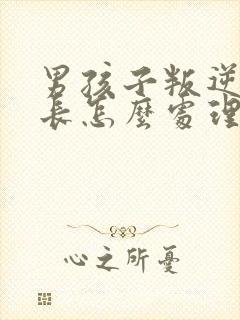 男孩子叛逆
長怎麼處理
心之所憂